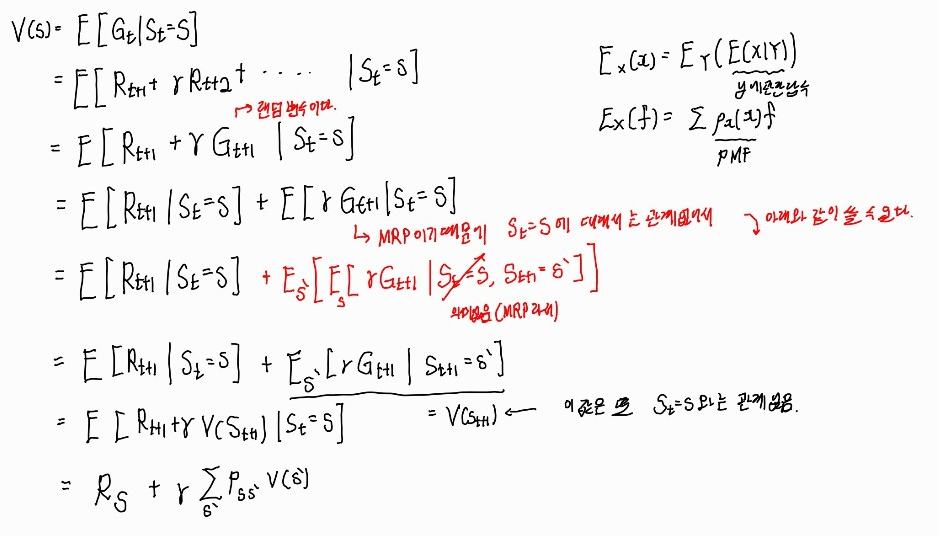 V(s) = E[G_t|S_t=S]
= E[R_{t+1} + γR_{t+2} + ···· |S_t=s]
→ 랜덤 변수이다.
= E[R_{t+1} + γG_{t+1} | S_t=s]
= E[R_{t+1}|S_t=s] + E[γG_{t+1}|S_t=s]
↳ MRP이기 때문에 S_t=s에 대해서는 관계없어서 ↴ 아래와 같이 쓸 수 있다.
= E[R_{t+1}|S_t=s] + E_{s`}[E_s[γG_{t+1}|S_t=s, S_{t+1}=s`]]
의미없음 (MRP라서)
= E[R_{t+1}|S_t=s] + E_{s`}[γG_{t+1}|S_{t+1}=s`]
= V(S_{t+1}) ← 이 값은 S_t=s 와는 관계 없음.
= E[R_{t+1}+γV(S_{t+1})|S_t=s]
= R_s + γ Σ_{s`} P_{ss`} V(s`)
E_x(x) = E_Y(E(X|Y))
y에 관한 함수
E_x(f) = Σ p_x(x)f
PMF